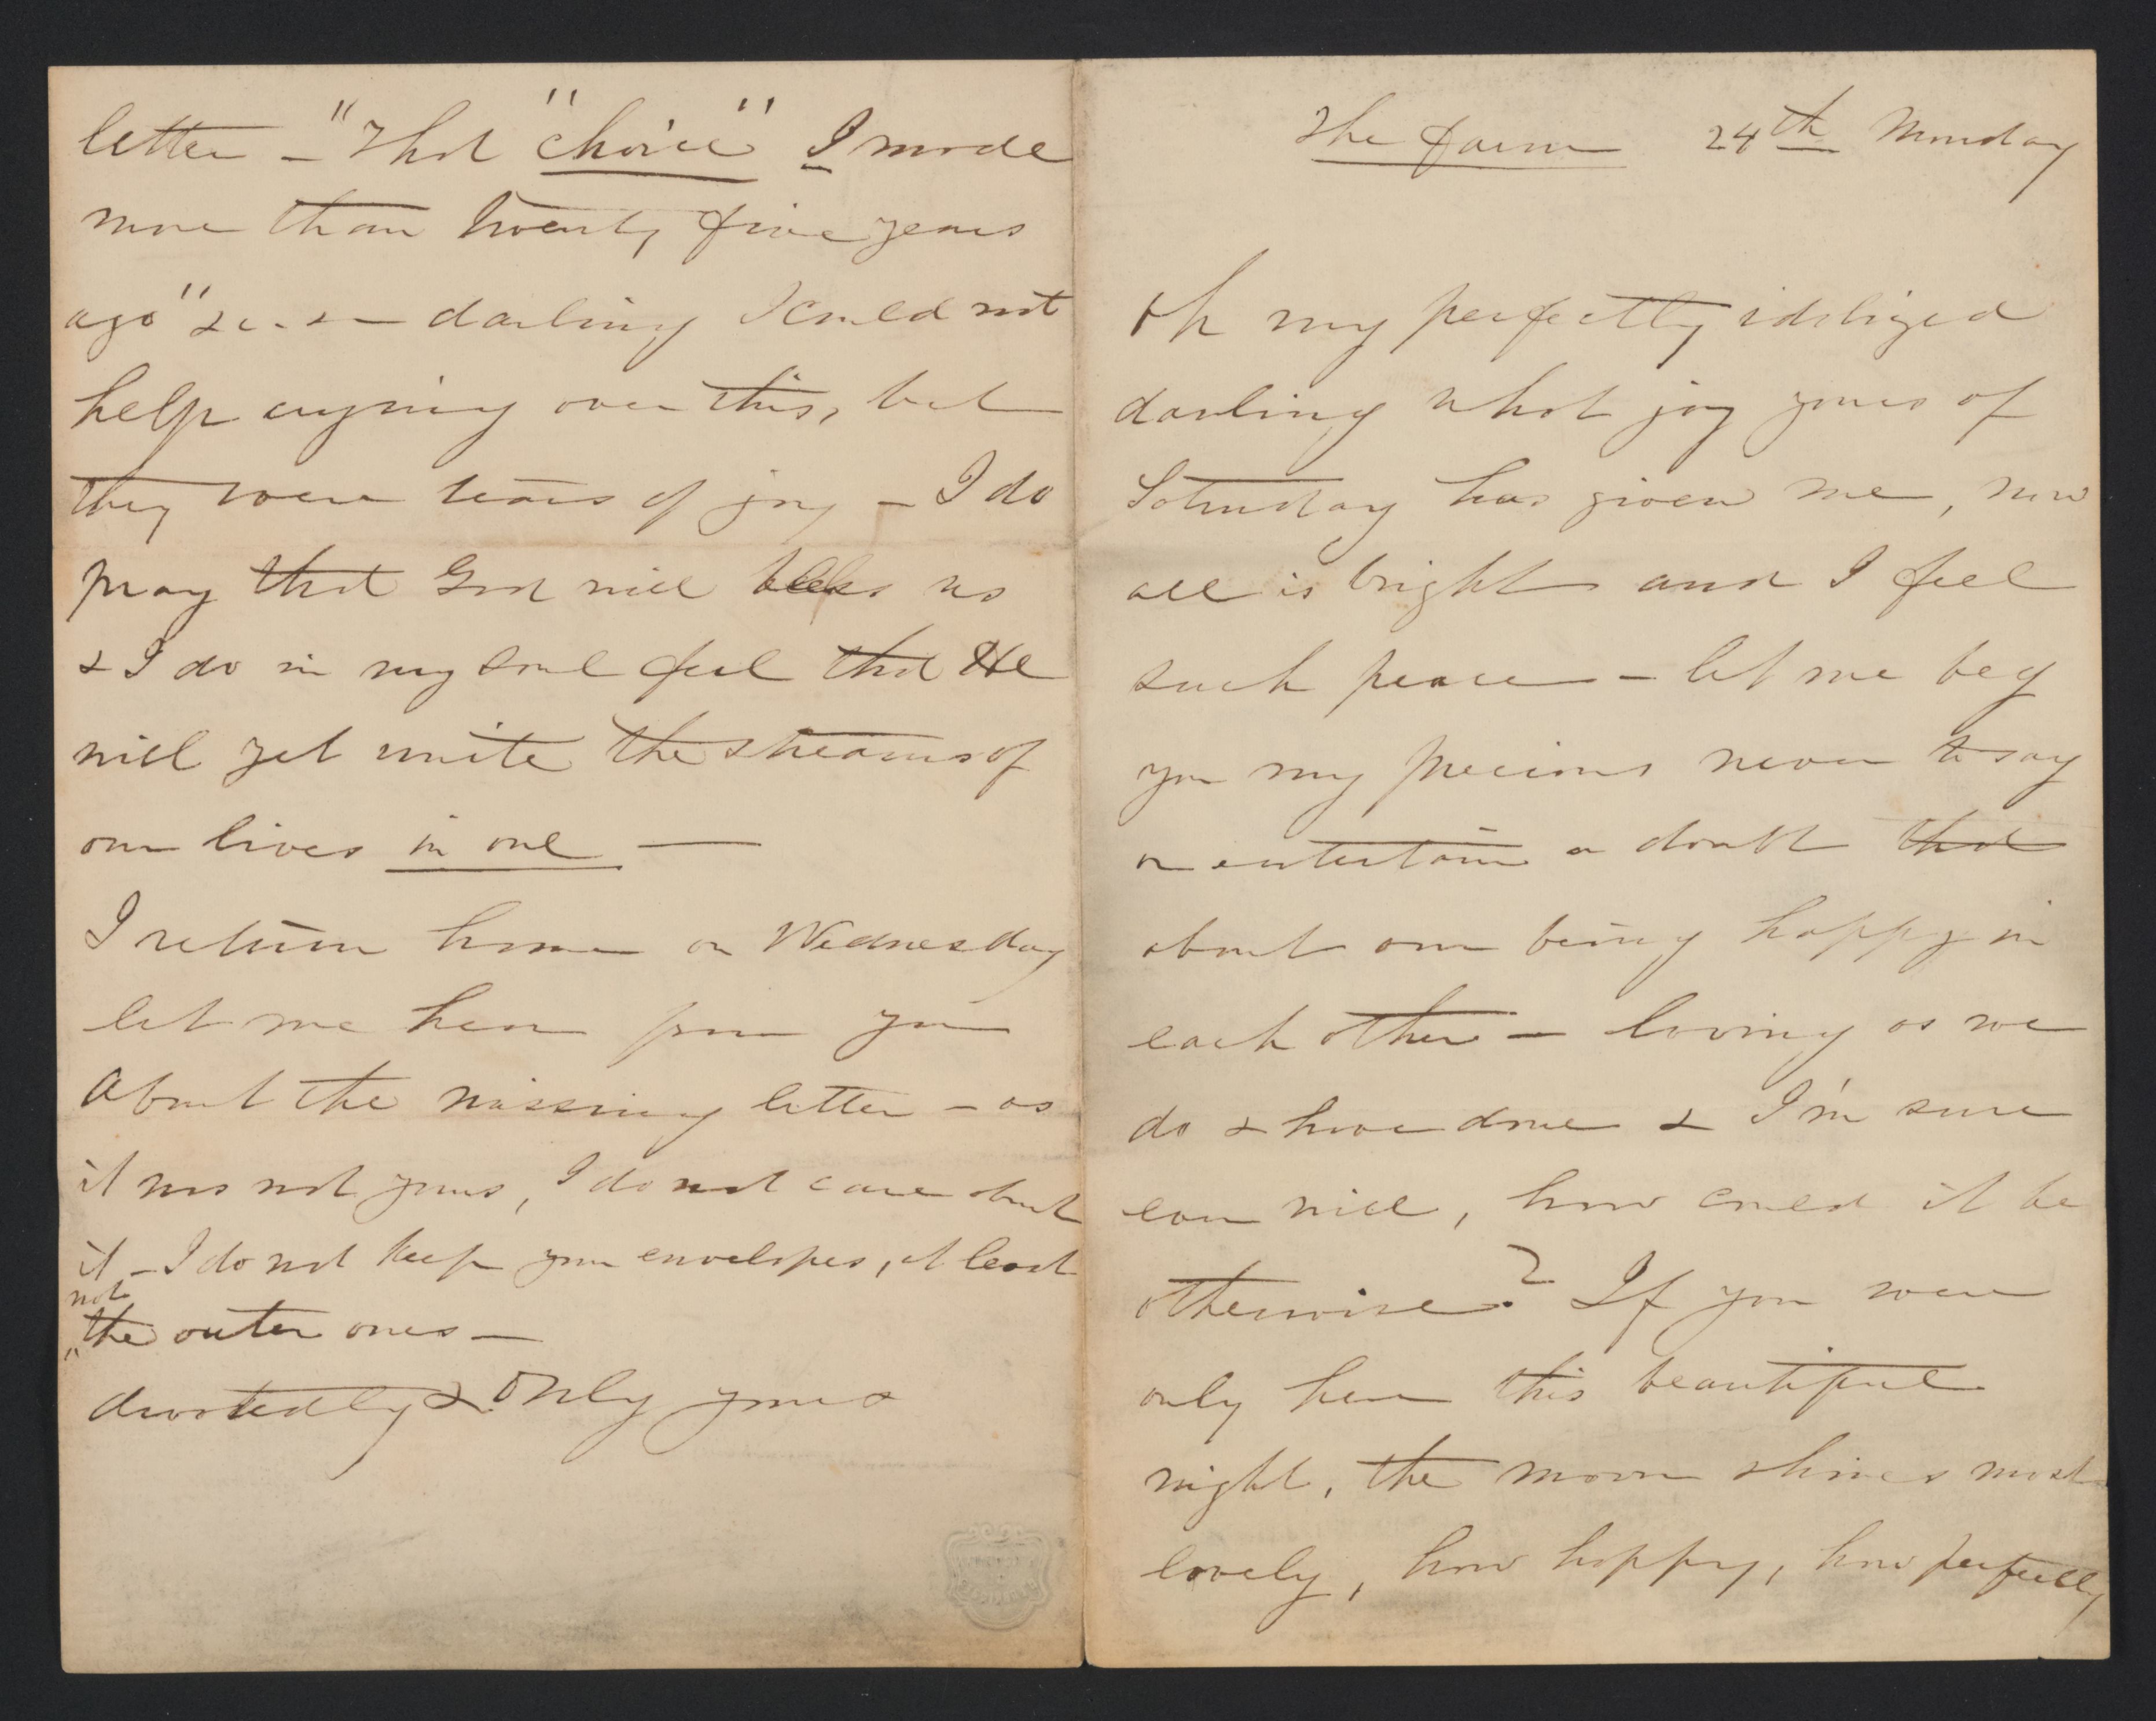 letter – "That "choice" I made
more than twenty five years
ago" &c. & – darling I could not
help crying over this, but
they were tears of joy – I do
pray that God will bless us
& I do in my soul feel that He
will yet unite the streams of
our lives in one —
I return home on Wednesday
let me hear from you
about the missing letter – as
it was not yours, I do not care about
it – I do not keep your envelopes, at least
not
the outer ones –
devotedly & only yours
The farm 24th Monday
Oh my perfectly idolized
darling what joy yours of
Saturday has given me, now
all is bright and I feel
such peace – let me beg
you my precious never to say
or entertain a doubt that
about our being happy in
each other – loving as we
do & have done & I'm sure
ever will, how could it be
otherwise? If you were
only here this beautiful
night, the moon shines most
lovely, how happy, how perfectly